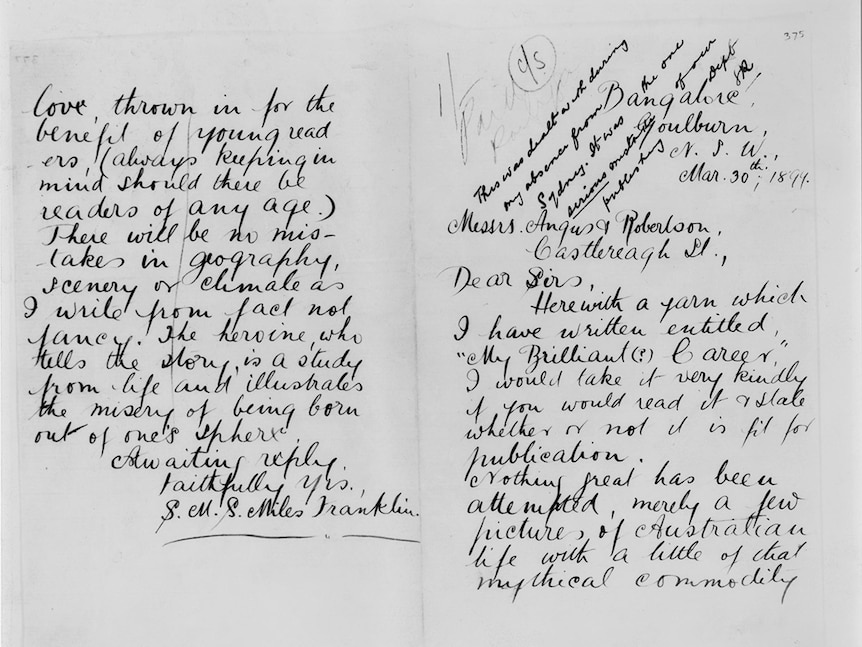 375
c/s
This was dealt with during
my absence from
Sydney. It was the one
serious mistake of our
publishing Dept
Bangalore,
Goulburn,
N. S. W.,
Mar. 30th, 1899.
Messrs. Angus & Robertson,
Castlereagh St.,
Dear Sirs,
Herewith a yarn which
I have written entitled,
"My Brilliant(?) Career,"
I would take it very kindly
if you would read it & state
whether or not it is fit for
publication.
Nothing great has been
attempted, merely a few
pictures of Australian
life with a little of that
mythical commodity
love, thrown in for the
benefit of young read
ers, (always keeping in
mind should there be
readers of any age.)
There will be no mis-
takes in geography,
scenery or climate as
I write from fact not
fancy. The heroine, who
tells the story, is a study
from life and illustrates
the misery of being born
out of one's sphere.
Awaiting reply.
Faithfully Yrs.,
S. M. S. Miles Franklin.